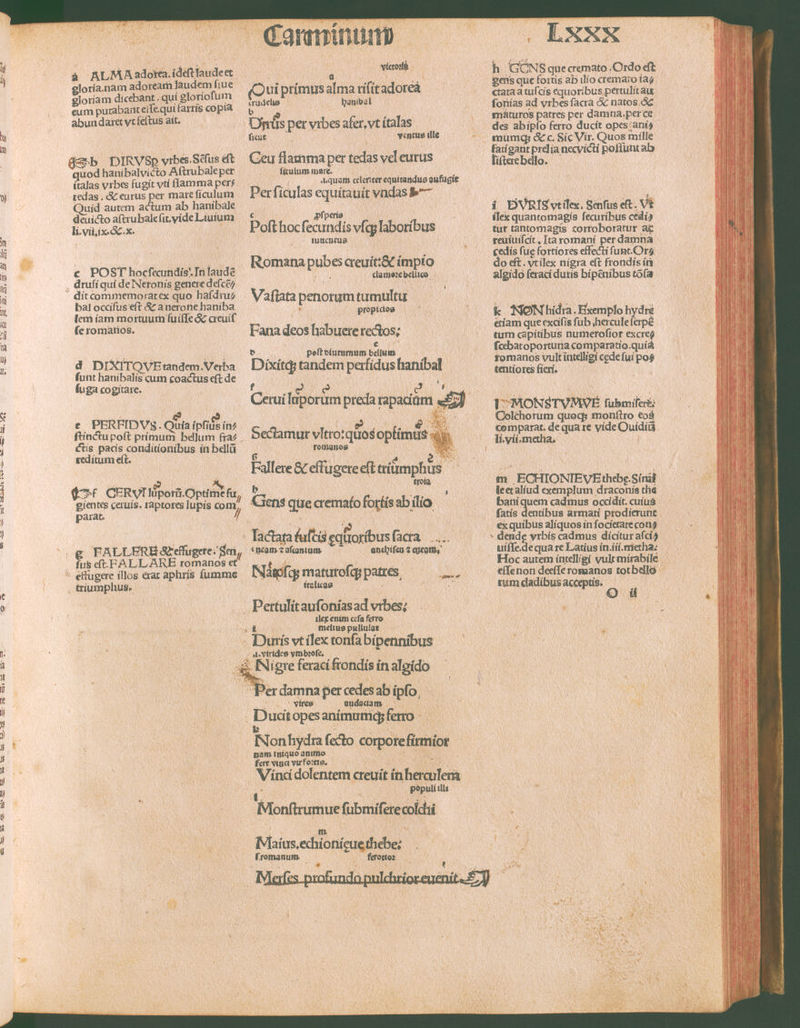 Carminum
Lxxx
a ALMA adorea. idest laude et
gloria. nam adoream laudem siue
gloriam dicebant. qui gloriosum
eum putabant esse. qui farris copia
abundaret vt festus ait.
b DIRVSq; vrbes. Sẽsus est
quod hanibal victo Astrubale per
italas vrbes fugit vti flamma per
tedas. & eurus per mare siculum
Quid autem actum ab hanibale
deuicto astrubale sit. vide Liuium
li. vii. ix. &. x.
c POST hoc secundis. In laudẽ
drusi qui de Neronis genere descẽ
dit commemorat ex quo hasdru
bal occisus est & a nerone haniba
lem iam mortuum fuisse & creuis
se romanos.
d DIXITQVE tandem. Verba
sunt hanibalis cum coactus est de
fuga cogitare.
e PERFIDVS. Quia ipsius in
stinctu post primum bellum fra
ctis pacis conditionibus in bellũ
reditum est.
f CERVI luporũ. Optime fu
gientes ceruis. raptores lupis com
parat.
g FALLERE & effugere. Sen
sus est. FALLARE romanos et
effugere illos erat aphris summe
triumphus.
victoriã
a
Qui primus alma risit adorea
crudelis hanibal
b
Dirus per vrbes afer. vt italas
sicut ventus ille
Ceu flamma per tedas vel eurus
siculum mare.
.i. quam celeriter equitandus aufugit
Per siculas equitauit vndas
c ꝓsperis
Post hoc secundis vsqꝫ laboribus
iuuentus
Romana pubes creuit: & impio
clamore bellico
Vastata penorum tumultu
propicios
Fana deos habuere rectos:
e
d post diuturnum bellum
Dixitqꝫ tandem perfidus hanibal
f
Cerui luporum preda rapacium
Sectamur vltro: quos optimus
romanos
g
Fallere & effugere est triumphus
troia
h
Gens que cremato fortis ab ilio
Iactata tuscis equoribus sacra
eneam & ascanium anchisen
Natosqꝫ maturosqꝫ patres
italicas
Pertulit ausonias ad vrbes:
ilex enim cesa ferro
i melius pullulat
Duris vt ilex tonsa bipennibus
.i. virides vmbrose.
Nigre feraci frondis in algido
Per damna per cedes ab ipso
vires audaciam
Ducit opes animumqꝫ ferro
k
Non hydra secto corpore firmior
nam iniquo animo
fert vinci vir fortis.
Vinci dolentem creuit in herculem
populi illi
l
Monstrumue submisere colchi
m
Maius. echionieue thebe:
romanum ferocior
Merses profundo pulchrior euenit
h GENS que cremato. Ordo est
gens que fortis ab ilio cremato ia
ctata a tuscis equoribus pertulit au
sonias ad vrbes sacra & natos &
maturos patres per damna. per ce
des ab ipso ferro ducit opes ani
mumqꝫ &c. Sic Vir. Quos mille
fatigant prelia nec victi possunt ab
sistere bello.
i DVRIS vt ilex. Sensus est. Vt
ilex quanto magis securibus cedi
tur tanto magis corroboratur ac
reuiuiscit. Ita romani per damna
cedis sue fortiores effecti sunt. Or
do est. vt ilex nigra est frondis in
algido feraci duris bipẽnibus tõsa
k NON hidra. Exemplo hydre
etiam que excisis sub hercule serpẽ
tum capitibus numerosior excre
scebat oportuna comparatio. quia
romanos vult intelligi cede sui po
tentiores fieri.
l MONSTVMVE submisere:
Colchorum quoqꝫ monstro eos
comparat. de qua re vide Ouidiũ
li. vii. metha.
m ECHIONIEVE thebe. Simi
le et aliud exemplum draconis the
bani quem cadmus occidit. cuius
satis dentibus armati prodierunt
ex quibus aliquos in societate con
dende vrbis cadmus dicitur asci
uisse. de qua re Latius in. iii. metha:
Hoc autem intelligi vult mirabile
esse non deesse romanos tot bello
rum cladibus acceptis.
O ii